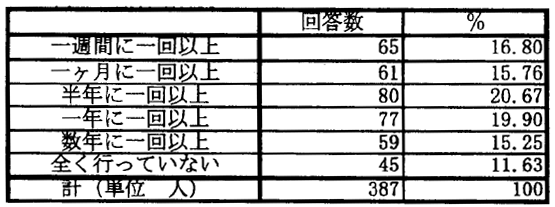 回答数 %
一週間に一回以上 65 16.80
一ヶ月に一回以上 61 15.76
半年に一回以上 80 20.67
一年に一回以上 77 19.90
数年に一回以上 59 15.25
全く行っていない 45 11.63
計（単位　人） 387 100